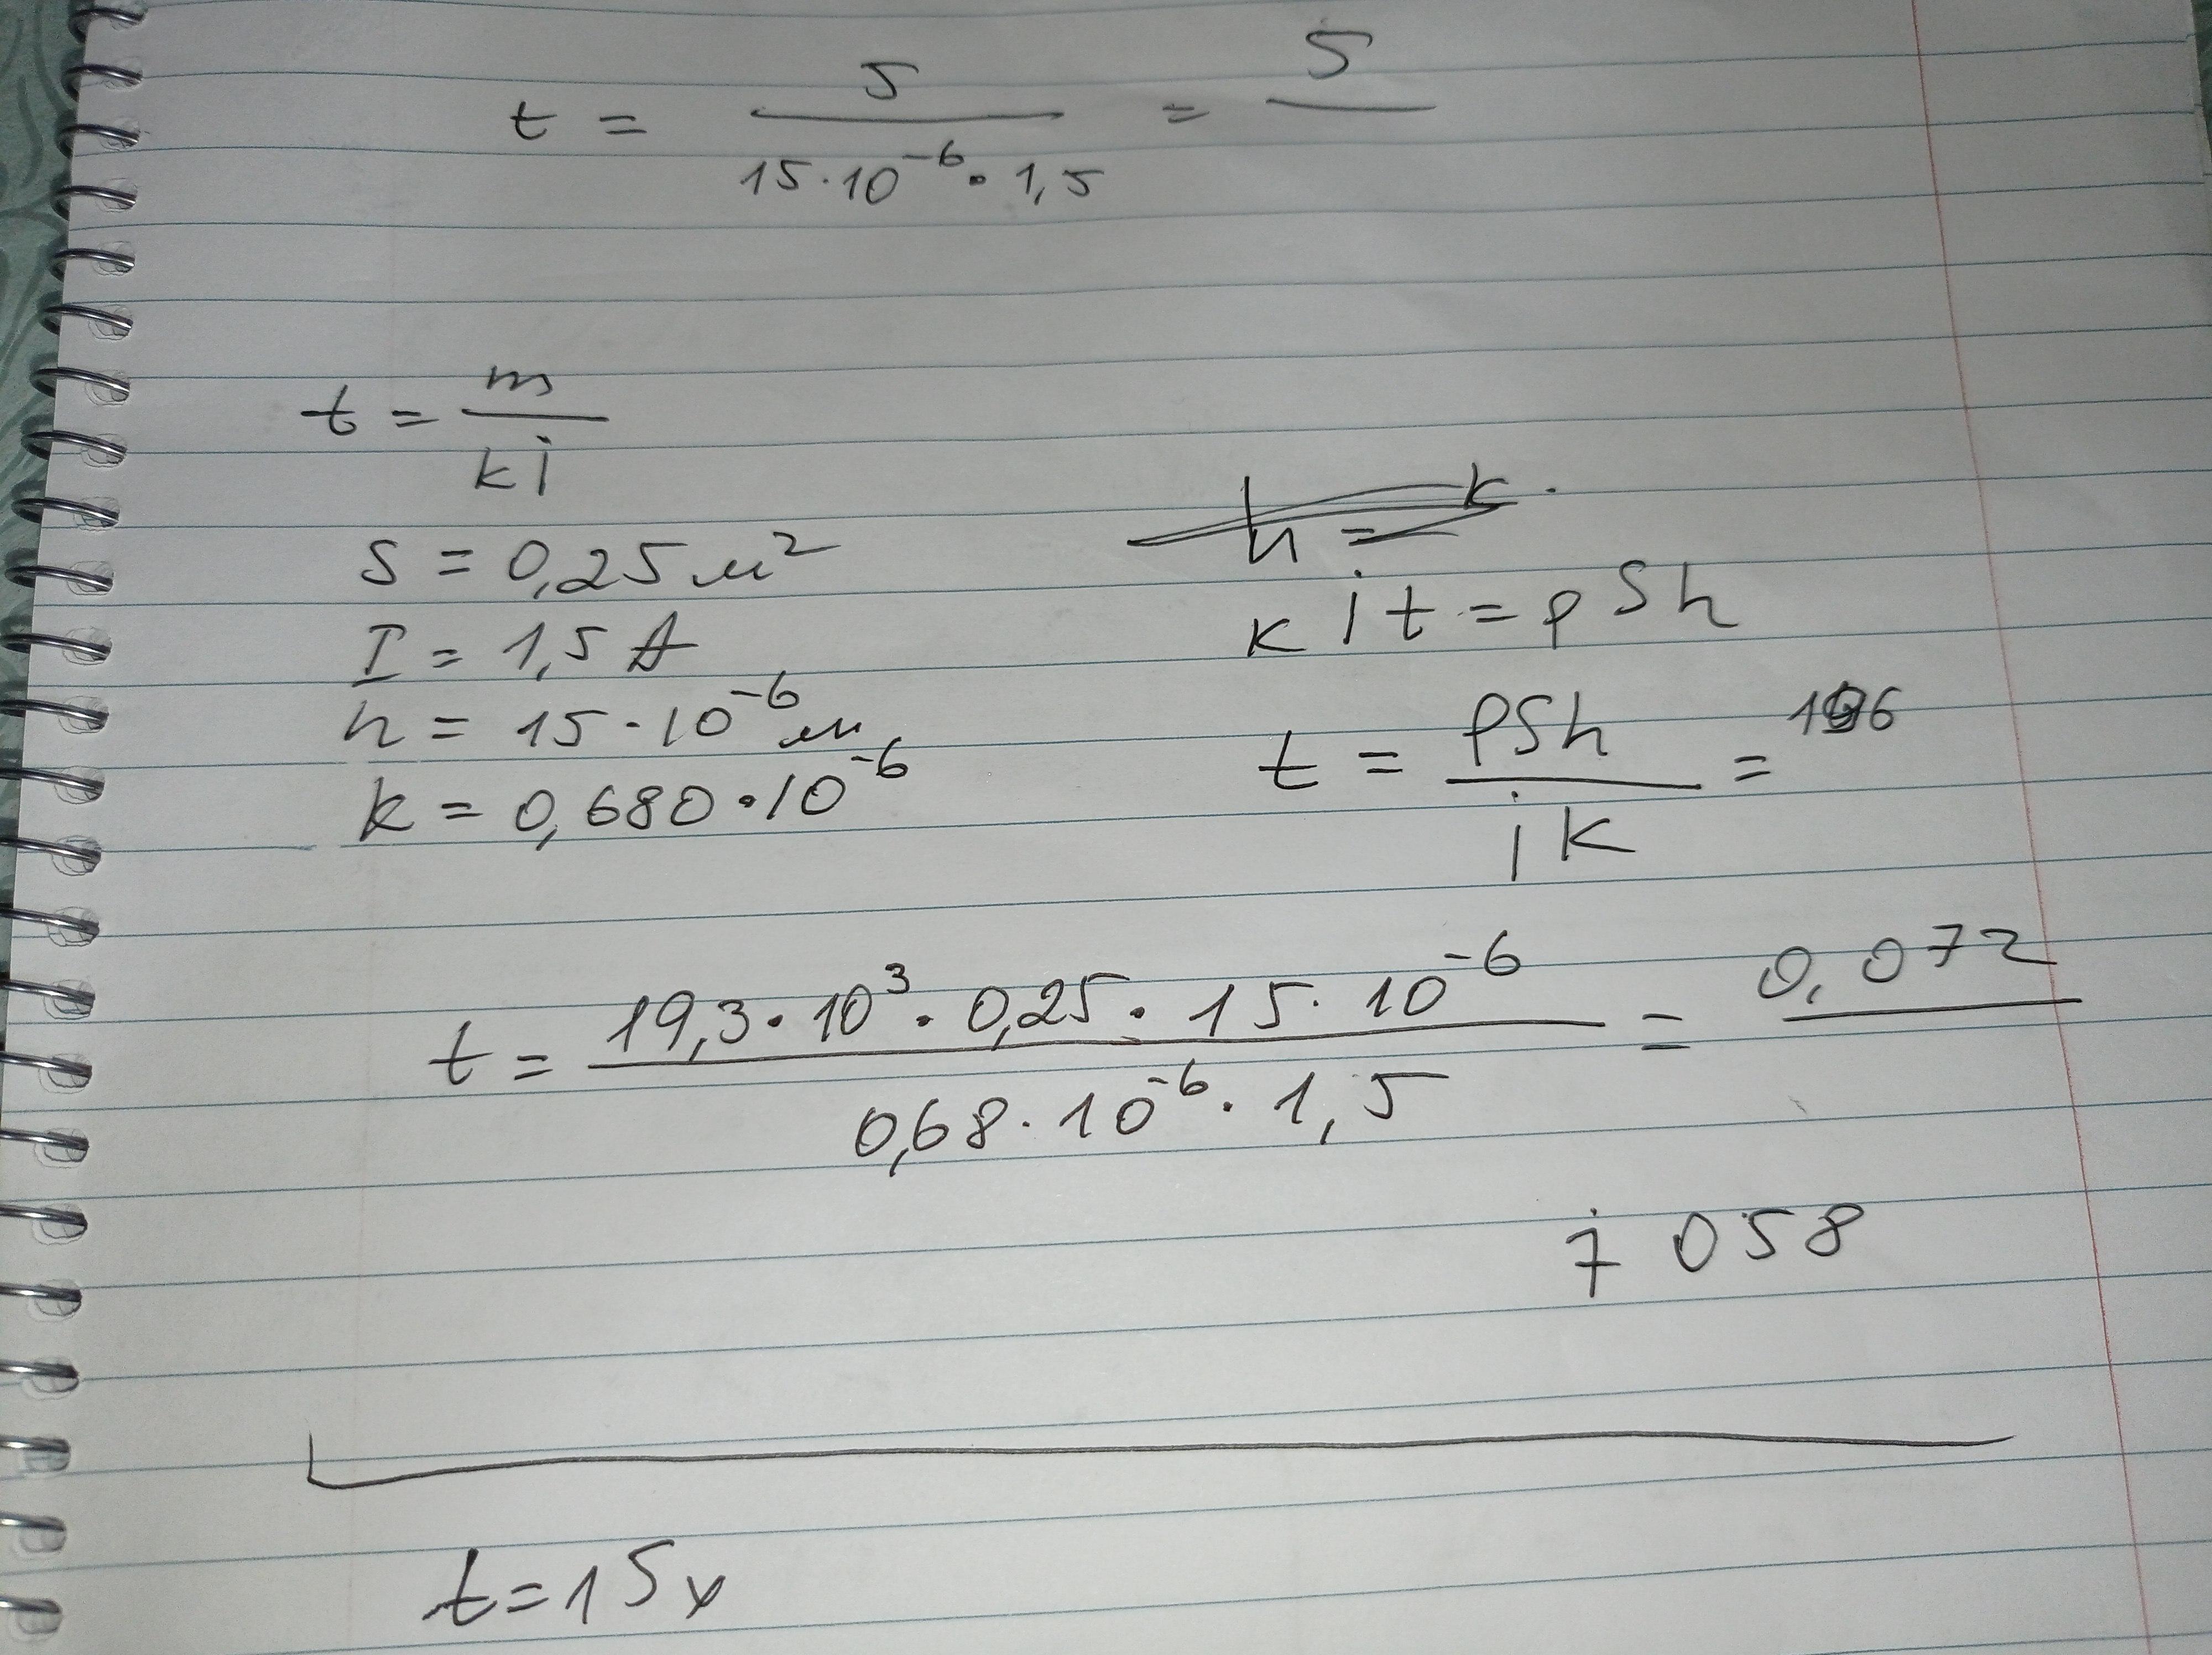 t = 5 / 15·10⁻⁶·1,5 = 5 /
t = m / k i
S = 0,25 м²
I = 1,5 A
h = 15·10⁻⁶ м
k = 0,680·10⁻⁶
k i t = ρSh
t = ρSh / i k =
t = 19,3·10³·0,25·15·10⁻⁶ / 0,68·10⁻⁶·1,5 = 0,072 /
7 058